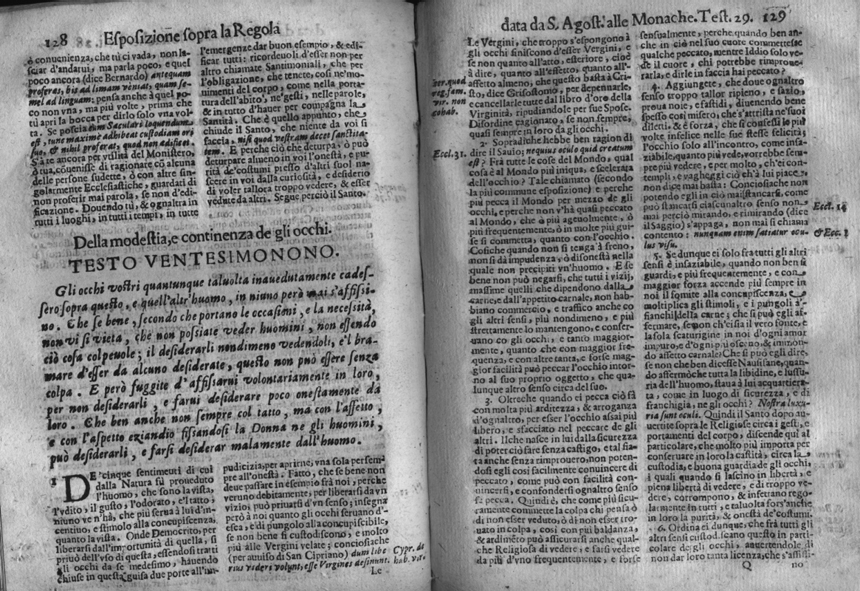 128 Esposizione sopra la Regola
ò convenienza, che tù ci vada, non la-
sciar d'andarui, ma parla poco, e quel
poco ancora (dice Bernardo) antequam
proferas, bis ad limam veniat, quam se-
mel ad linguam; pensa anche à quel po-
co non vna, ma più volte, prima che
tù apri la bocca per dirlo solo vna vol-
ta. Se poscia cum Saculari loquendum
est, tunc maxime adhibeas custodiam ori
suo, & nihil proferat, quod non ædificet.
S'a te ancor per vtilità del Monistero,
ò tua, conuenisse di ragionare cò alcuna
delle persone sudette, ò con altre sin-
golarmente Ecclesiastiche, guardati di
non proferir mai parola, se non d'edi-
ficazione. Douendo tù, & ognaltra in
tutti i luoghi, in tutti i tempi, in tutte
l'emergenze dar buon esempio, & edi-
ficar tutti: ricordeuoli d'esser non per
altro chiamate Santimoniali, che per
l'obligazione, che tenete, così ne' mo-
uimenti del corpo, come nella porta-
tura dell'abito, ne' gesti, nelle parole,
& in tutto d'hauer per compagna la
Santità. Che è quello appunto, che
chiude il Santo, che niente da voi si
faccia, nisi quod vestram decet sanctita-
tem. E perche ciò che deturpa, ò può
deturpare almeno in voi l'onestà, e pu-
rità de' costumi presso d'altri suol na-
scere in voi dalla curiosità, e desiderio
di voler talhora troppo vedere, & esser
vedute da altri. Segue perciò il Santo.
Della modestia, e continenza de gli occhi.
TESTO VENTESIMONONO.
Gli occhi vostri quantunque taluolta inauedutamente cades-
sero sopra questo, e quell'altr'huomo, in niuno però mai s'affissi-
no. Che se bene, secondo che portano le occasioni, e la necessità,
non vi si vieta, che non possiate veder huomini, non essendo
ciò cosa colpeuole; il desiderarli nondimeno vedendoli, e'l bra-
mare d'esser da alcuno desiderate, questo non può essere senza
colpa. E però fuggite d'affisarui volontariamente in loro,
per non desiderarli, e farui desiderare poco onestamente da
loro. Che ben anche non sempre col tatto, ma con l'affetto,
e con l'aspetto eziandio fissandosi la Donna ne gli huomini,
può desiderarli, e farsi desiderar malamente dall'huomo.
1 DE' cinque sentimenti di cui
dalla Natura fù proueduto
l'huomo, che sono la vista,
l'vdito, il gusto, l'odorato, e'l tatto;
niuno ve n'hà, che più serua à lui d'in-
centiuo, e stimolo alla concupiscenza,
quanto la vista. Onde Democrito, per
liberarsi dall'importunità di quella, si
priuò dell'vso di questa, essendosi tratti
gli occhi da se medesimo, hauendo
chiuse in questa guisa due porte all'im-
pudicizia, per aprirne vna sola per sem-
pre all'onestà. Fatto, che se bene non
deue passare in esempio frà noi, perche
veruno debitamente, per liberarsi da vn
vizio, può priuarsi d'vn senso, insegna
però à noi quanto gli occhi seruano d'
esca, e di pungolo alla concupiscibile,
se non bene si custodiscono, e molto
più alle Vergini velate; conciosiache
(per auuiso di San Cipriano) dum libe-
rius videri volunt, esse Virgines desinunt.
Cypr. de
hab. vir.
Le
data da S. Agost. alle Monache. Test. 29. 129
Le Vergini, che troppo s'espongono à
gli occhi finiscono d'esser Vergini, e
se non quanto all'atto, esteriore, cioè
à dire, quanto all'affetto, quanto all'
affetto almeno, che questo basta à Cri-
sto, dice Grisostomo, per depennarle,
e cancellarle tutte dal libro d'oro della
Virginità, ripudiandole per sue Spose.
Disordine cagionato, se non sempre,
quasi sempre in loro da gli occhi.
2. Sopra di che hebbe ben ragion di
dir il Sauio; nequius oculo quid creatum
est? Frà tutte le cose del Mondo, qual
cosa è al Mondo più iniqua, e scelerata
dell'occhio? Tale chiamato (secondo
la più commune esposizione) e perche
più pecca il Mondo per mezzo de gli
occhi, e perche non v'hà quasi peccato
al Mondo, che ò più ageuolmente, ò
più frequentemente, ò in molte più gui-
se si commetta, quanto con l'occhio.
Cosiche quando non si tenga à freno,
non si dà impudenza, ò disonestà nella
quale non precipiti vn'huomo. E se
bene non può negarsi, che tutti i vizij,
massime quelli che dipendono dalla
carne, e dall'appetito carnale, non hab-
biano commercio, e traffico anche co
gli altri sensi, più nondimeno, e più
strettamente lo mantengono, e conser-
uano co gli occhi; e tanto maggior-
mente, quanto che con maggior fre-
quenza, e con altre tanta, e forse mag-
gior facilità può peccar l'occhio intor-
no al suo proprio oggetto, che qua-
lunque altro senso circa del suo.
3. Oltreche quando ei pecca ciò fà
con molta più arditezza, & arroganza
d'ognaltro, per esser l'occhio assai più
libero, e sfacciato nel peccare de gli
altri. Ilche nasce in lui dalla sicurezza
di poter ciò fare senza castigo, e tal fia-
ta anche senza rimprouero; non poten-
dosi egli così facilmente conuincere di
peccato, come può con facilità con-
uincersi, e confondersi ognaltro senso
se pecca. Quindi è, che come più sicu-
ramente commette la colpa chi pensa ò
di non esser veduto, ò di non esser tro-
uato in colpa, così con più baldanza,
& ardimento può assicurarsi anche qual-
che Religiosa di vedere, e farsi vedere
da più d'vno frequentemente, e forse
Ber. quod
reg. fœm.
vir. non
cohab.
Eccl. 31.
sensualmente, perche quando ben an-
che in ciò nel suo cuore commettesse
qualche peccato, mentre Iddio solo ve-
de il cuore, chi potrebbe rimprouerarla, e dirle in faccia hai peccato?
4. Aggiungete, che doue ognaltro
senso troppo taluor ripieno, e satio
proua noie, e fastidi, diuenendo bene
spesso così misero, che s'attrista ne' suoi
diletti, & è forza, che si confessi le più
volte infelice nelle sue stesse felicità;
l'occhio solo all'incontro, come insa-
ziabile, quanto più vede, vorrebbe sem-
pre più vedere, e per molto, ch'ei con-
templi, e vagheggi ciò ch'à lui piace,
non dice mai basta: Conciosiache non
potendo egli in ciò mai stancarsi, come
può stancarsi ciascun'altro senso, non
mai perciò mirando, e rimirando (dice
il Saggio) s'appaga, non mai si chiama
contento: nunquam enim satiatur ocu-
lus visu.
Eccl. 14
& Ecc. 1
5. Se dunque ei solo frà tutti gli altri
sensi è insaziabile, quando non ben si
guardi, e più frequentemente, e con
maggior forza accende più sempre in
noi il fomite alla concupiscenza, e
moltiplica gli stimoli, e i pungoli à
fianchi della carne; che si può egli af-
fermare, se non ch'ei sia il vero fonte, e
la sola scaturigine in noi d'ogni amor
impuro, e d'ogni più osceno, & immon-
do affetto carnale? Che si può egli dire,
se non che ben dicesse Nausifane, quan-
do affermò che tutta la libidine, e lussu-
ria dell'huomo, staua à lui acquartiera-
ta, come in luogo di sicurezza, e di
franchigia, ne gli occhi? Nostra luxu-
ria sunt oculi. Quindi il Santo dopo au-
uertite sopra le Religiose circa i gesti, e
portamenti del corpo, discende qui al
particolare, che molto più importa per
conseruare in loro la castità, circa la
custodia, e buona guardia de gli occhi,
i quali quando si lascino in libertà, e
piena libertà di vedere, e di troppo ve-
dere, corrompono, & infettano rego-
larmente in tutti, e taluolta fors'anche
in loro la purità, & onestà de' costumi.
6. Ordina ei dunque, che frà tutti gli
altri sensi custodiscano questo in parti-
colare de gli occhi, auuertendole di
non dar loro tanta licenza, che s'affissi-
Q no